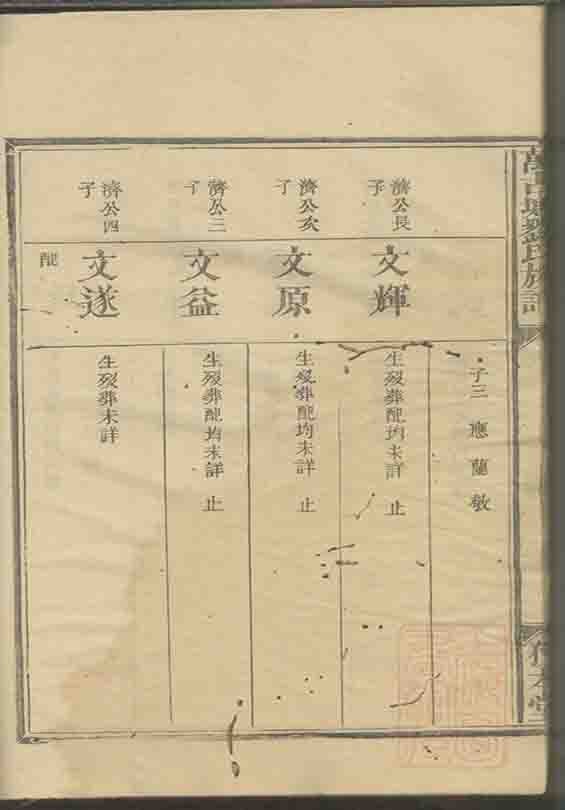 劉氏族譜
子三 應 蘭 敏
濟公長
子
文輝
生歿葬配均未詳 止
濟公次
子
文原
生歿葬配均未詳 止
濟公三
子
文益
生歿葬配均未詳 止
濟公四
子
文遂
生歿葬未詳
配